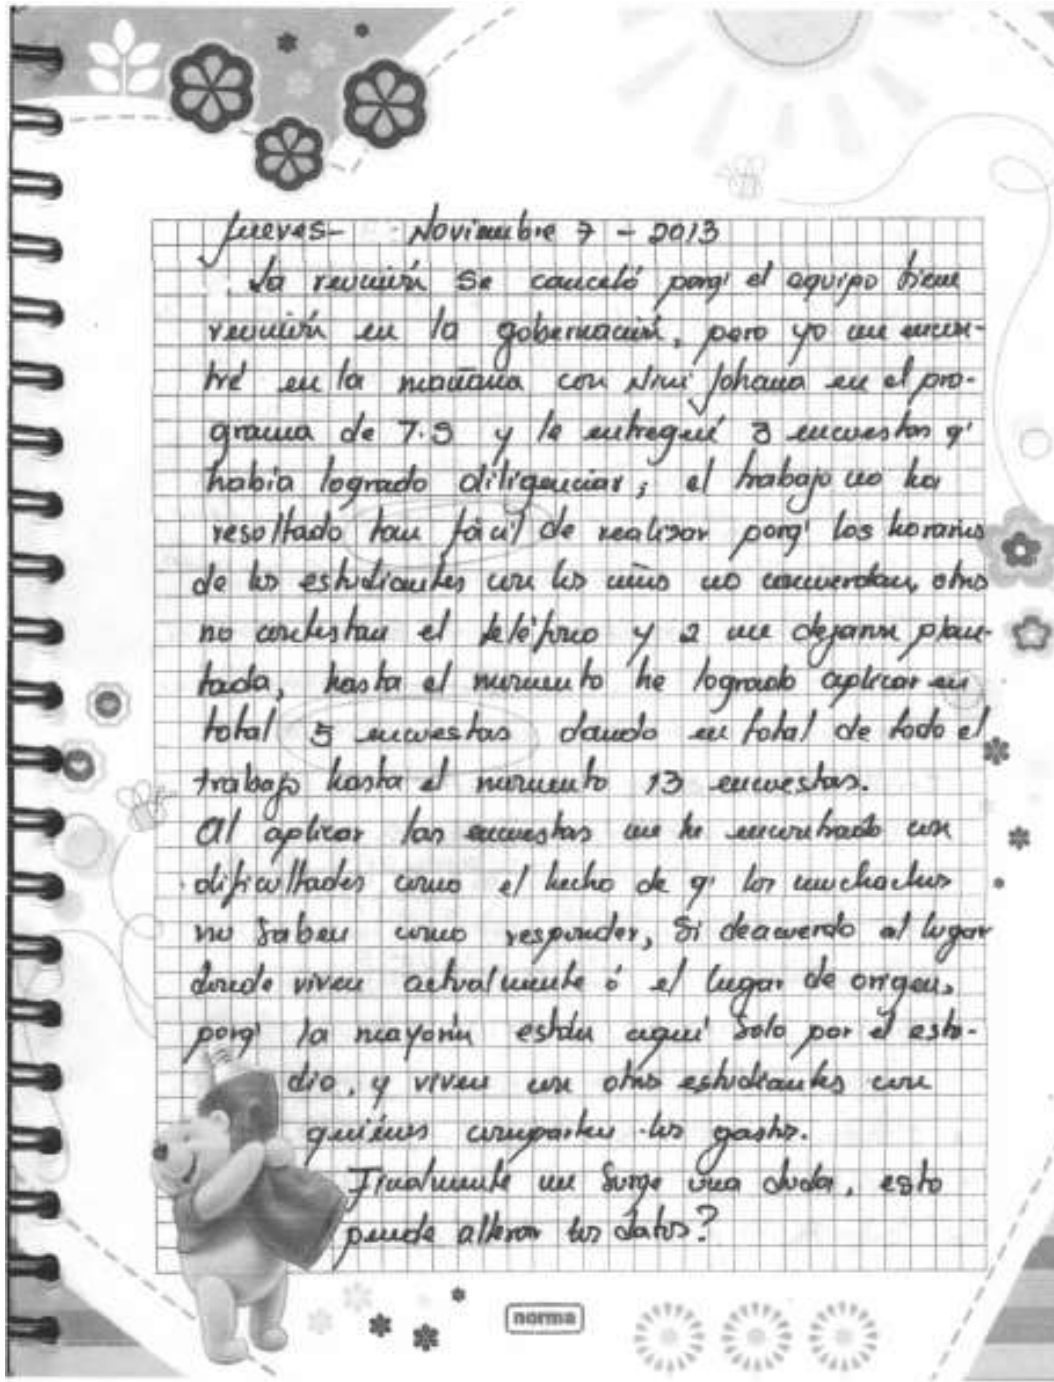 Jueves- Noviembre 7 - 2013
La reunión se canceló porq' el equipo tiene
reunión en la gobernación, pero yo me encon-
tré en la mañana con Nini Johana en el pro-
grama de 7.9 y le entregué 3 encuestas q'
había logrado diligenciar; el trabajo no ha
resoltado tan fácil de realizar porq' los horarios
de los estudiantes con los mios no concuerdan, otros
no contestan el teléfono y 2 me dejaron plan-
tada, hasta el momento he logrado aplicar en
total 5 encuestas dando en total de todo el
trabajo hasta el momento 13 encuestas.
Al aplicar las encuestas me he encontrado con
dificultades como el hecho de q' los muchachos
no saben como responder, Si deacuerdo al lugar
donde viven actualmente ó el lugar de origen,
porq' la mayoría están aquí solo por el estu-
dio, y viven con otros estudiantes con
quiénes comparten los gastos.
Finalmente me surge una duda, esto
puede alterar los datos?
norma